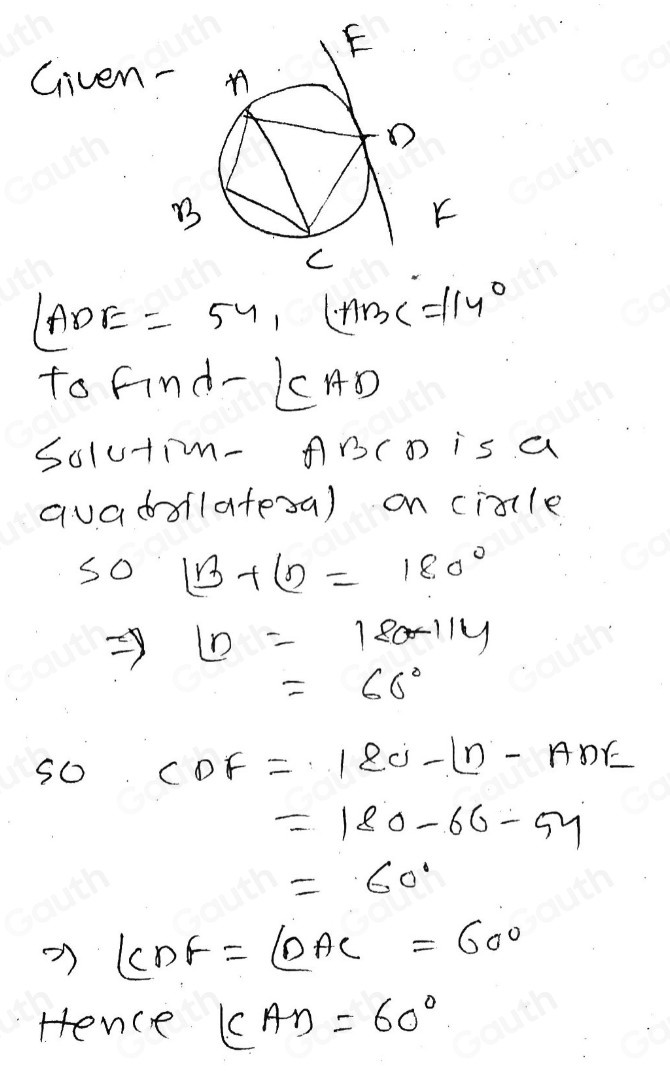 Given-
E
A
D
B
F
C
∠ADE = 54, ∠ABC = 114°
To find- ∠CAD
Solution- ABCD is a
quadrilateral on circle
so ∠B + ∠D = 180°
⇒ ∠D = 180-114
= 66°
so CDF = 180 - ∠D - ADE
= 180 - 66 - 54
= 60°
⇒ ∠CDF = ∠DAC = 60°
Hence ∠CAD = 60°
Gauth